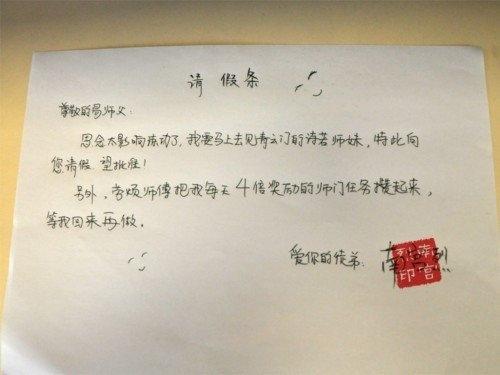 请假条
尊敬的易师父:
思念太影响练功了,我要马上去见青云门的诗若师妹,特此向
您请假,望批准!
另外,劳烦师傅把我每天4倍奖励的师门任务攒起来,
等我回来再做。
爱你的徒弟:南宫烈
南宫烈印